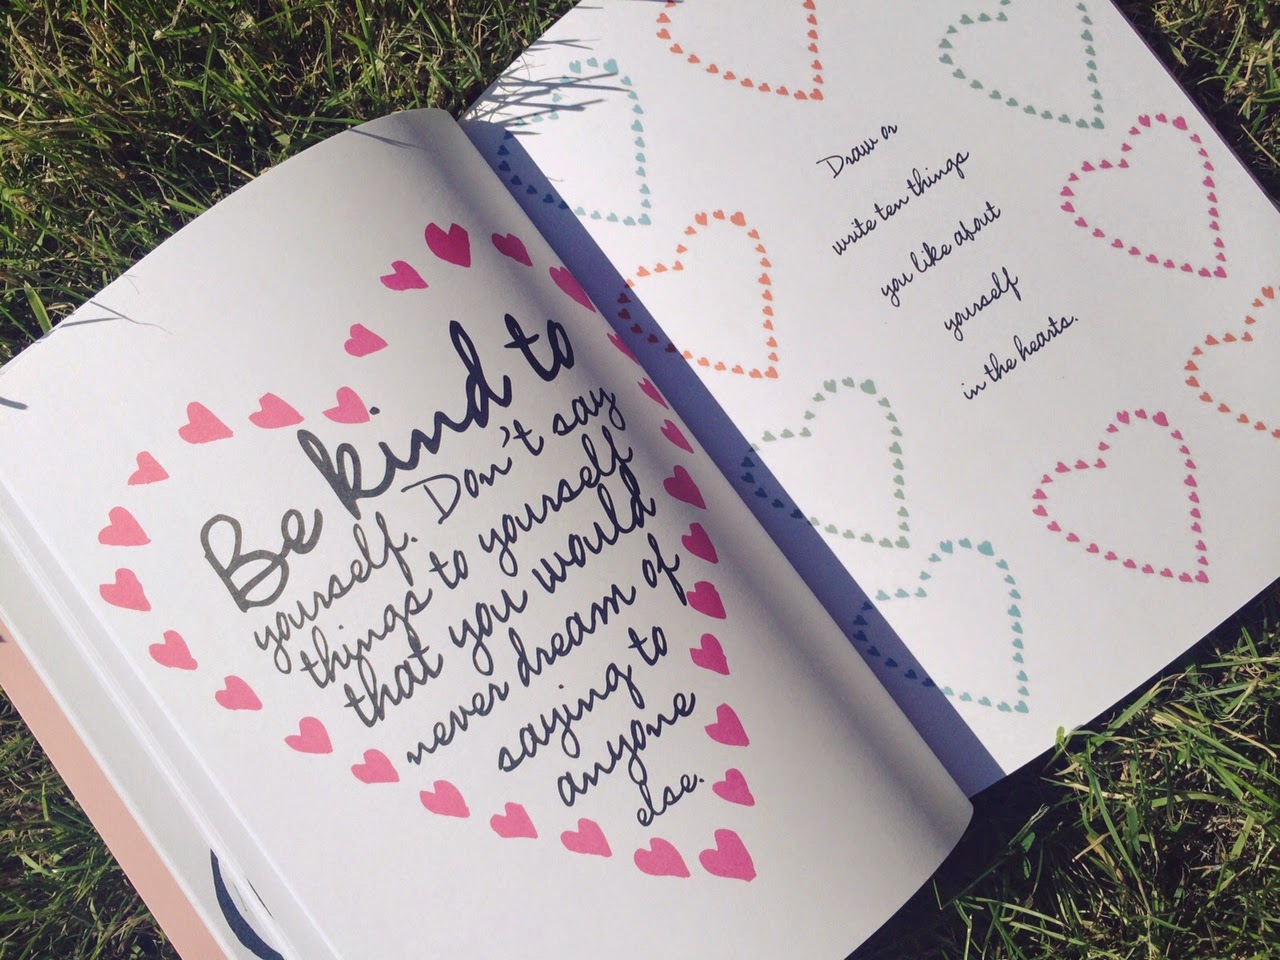 Be kind to
yourself. Don't say
things to yourself
that you would
never dream of
saying to
anyone
else.
Draw or
write ten things
you like about
yourself
in the hearts.